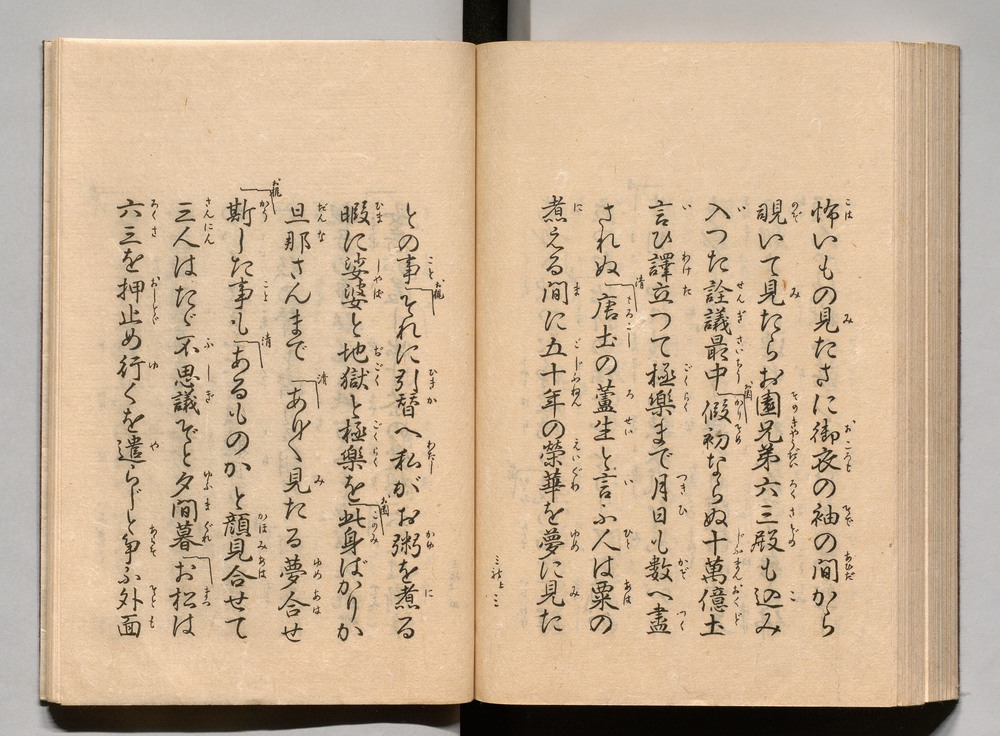 怖いもの見たさに御衣の袖の間から
覗いて見たらお園兄弟六三殿も込み
入つた詮議最中假初ならぬ十萬億土
言ひ譯立つて極樂まで月日も数へ盡
されぬ唐土の蘆生と言ふ人は粟の
煮える間に五十年の榮華を夢に見た
三社上 三
との事それに引替へ私がお粥を煮る
暇に娑婆と地獄と極樂を此身ばかりか
旦那さんまであり〱見たる夢合せ
斯した事もあるものかと顔見合せて
三人はたゞ不思議ぞと夕間暮お松は
六三を押止め行くを遣らじと争ふ外面